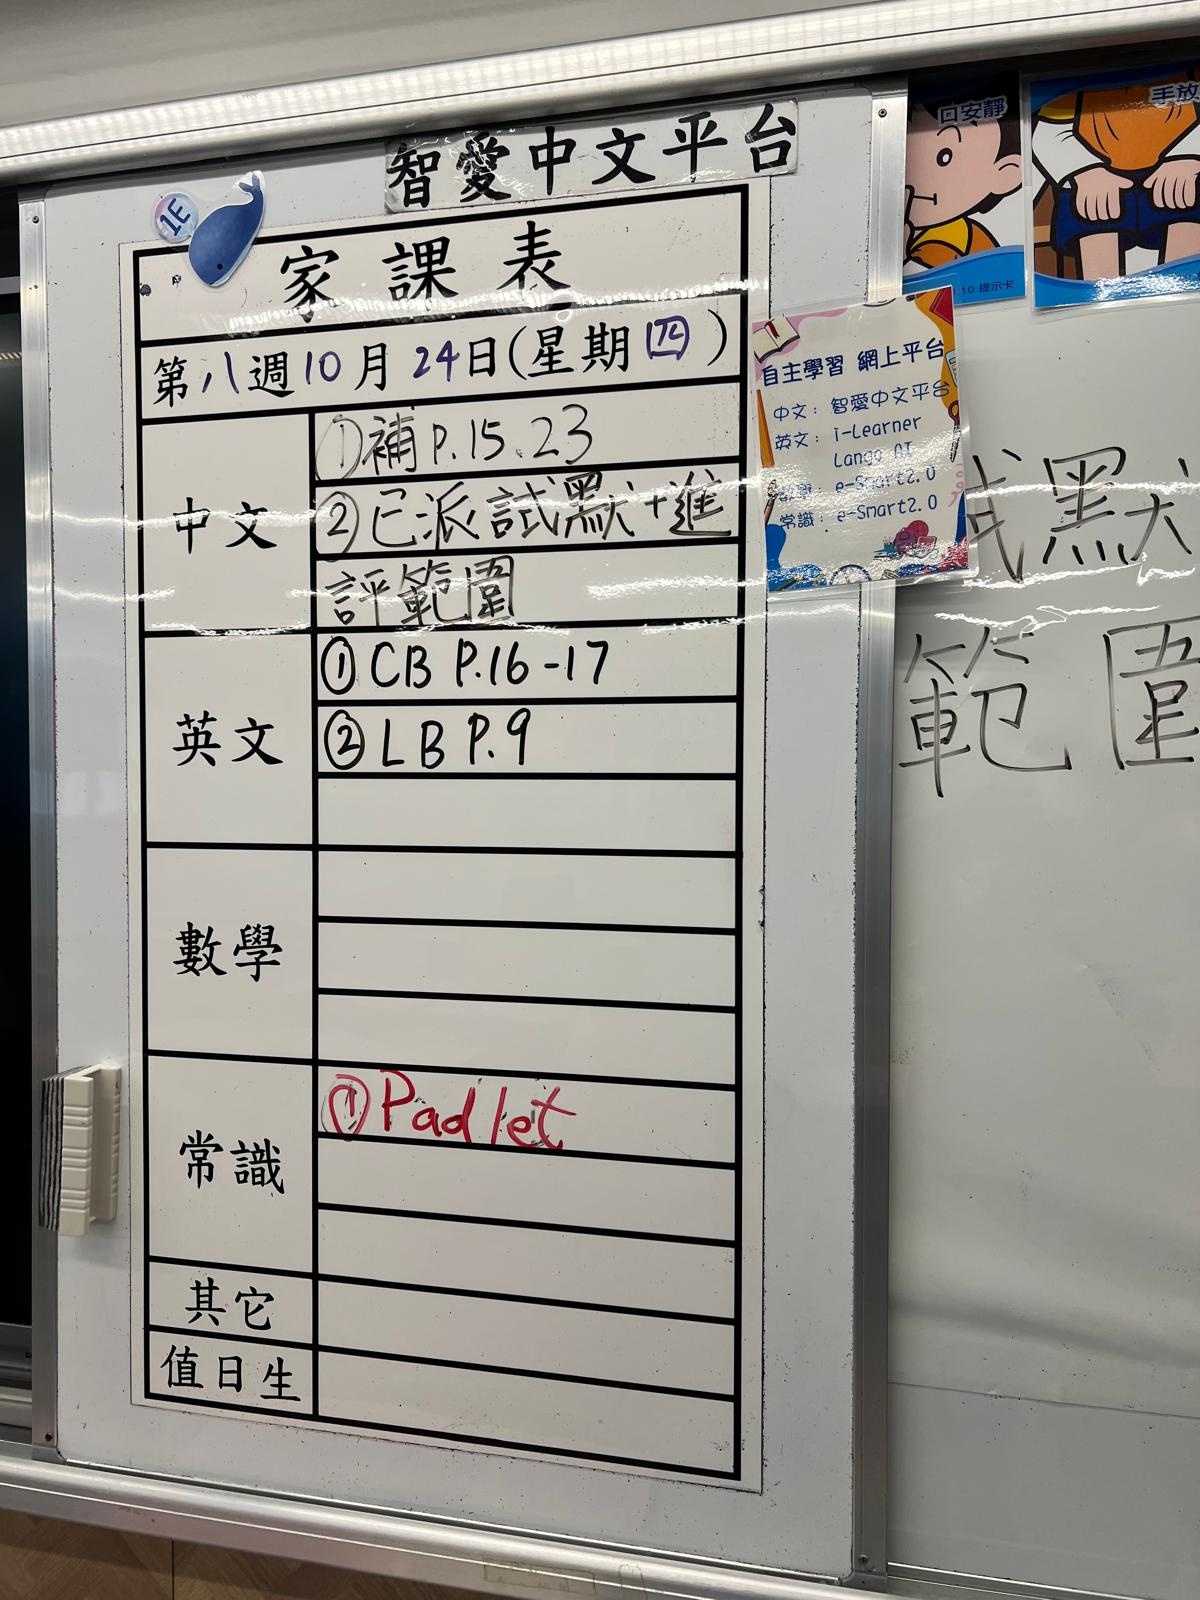 智愛中文平台
1E
家課表
第八週10月24日(星期四)
中文
①補P.15.23
②已派試默+進
評範圍
英文
①CB P.16-17
②LB P.9
數學
常識
①Padlet
其它
值日生
口安靜
手放
10 提示卡
自主學習 網上平台
中文：智愛中文平台
英文：i-Learner
Lango AI
e-Smart2.0
常識：e-Smart2.0
試默
範圍